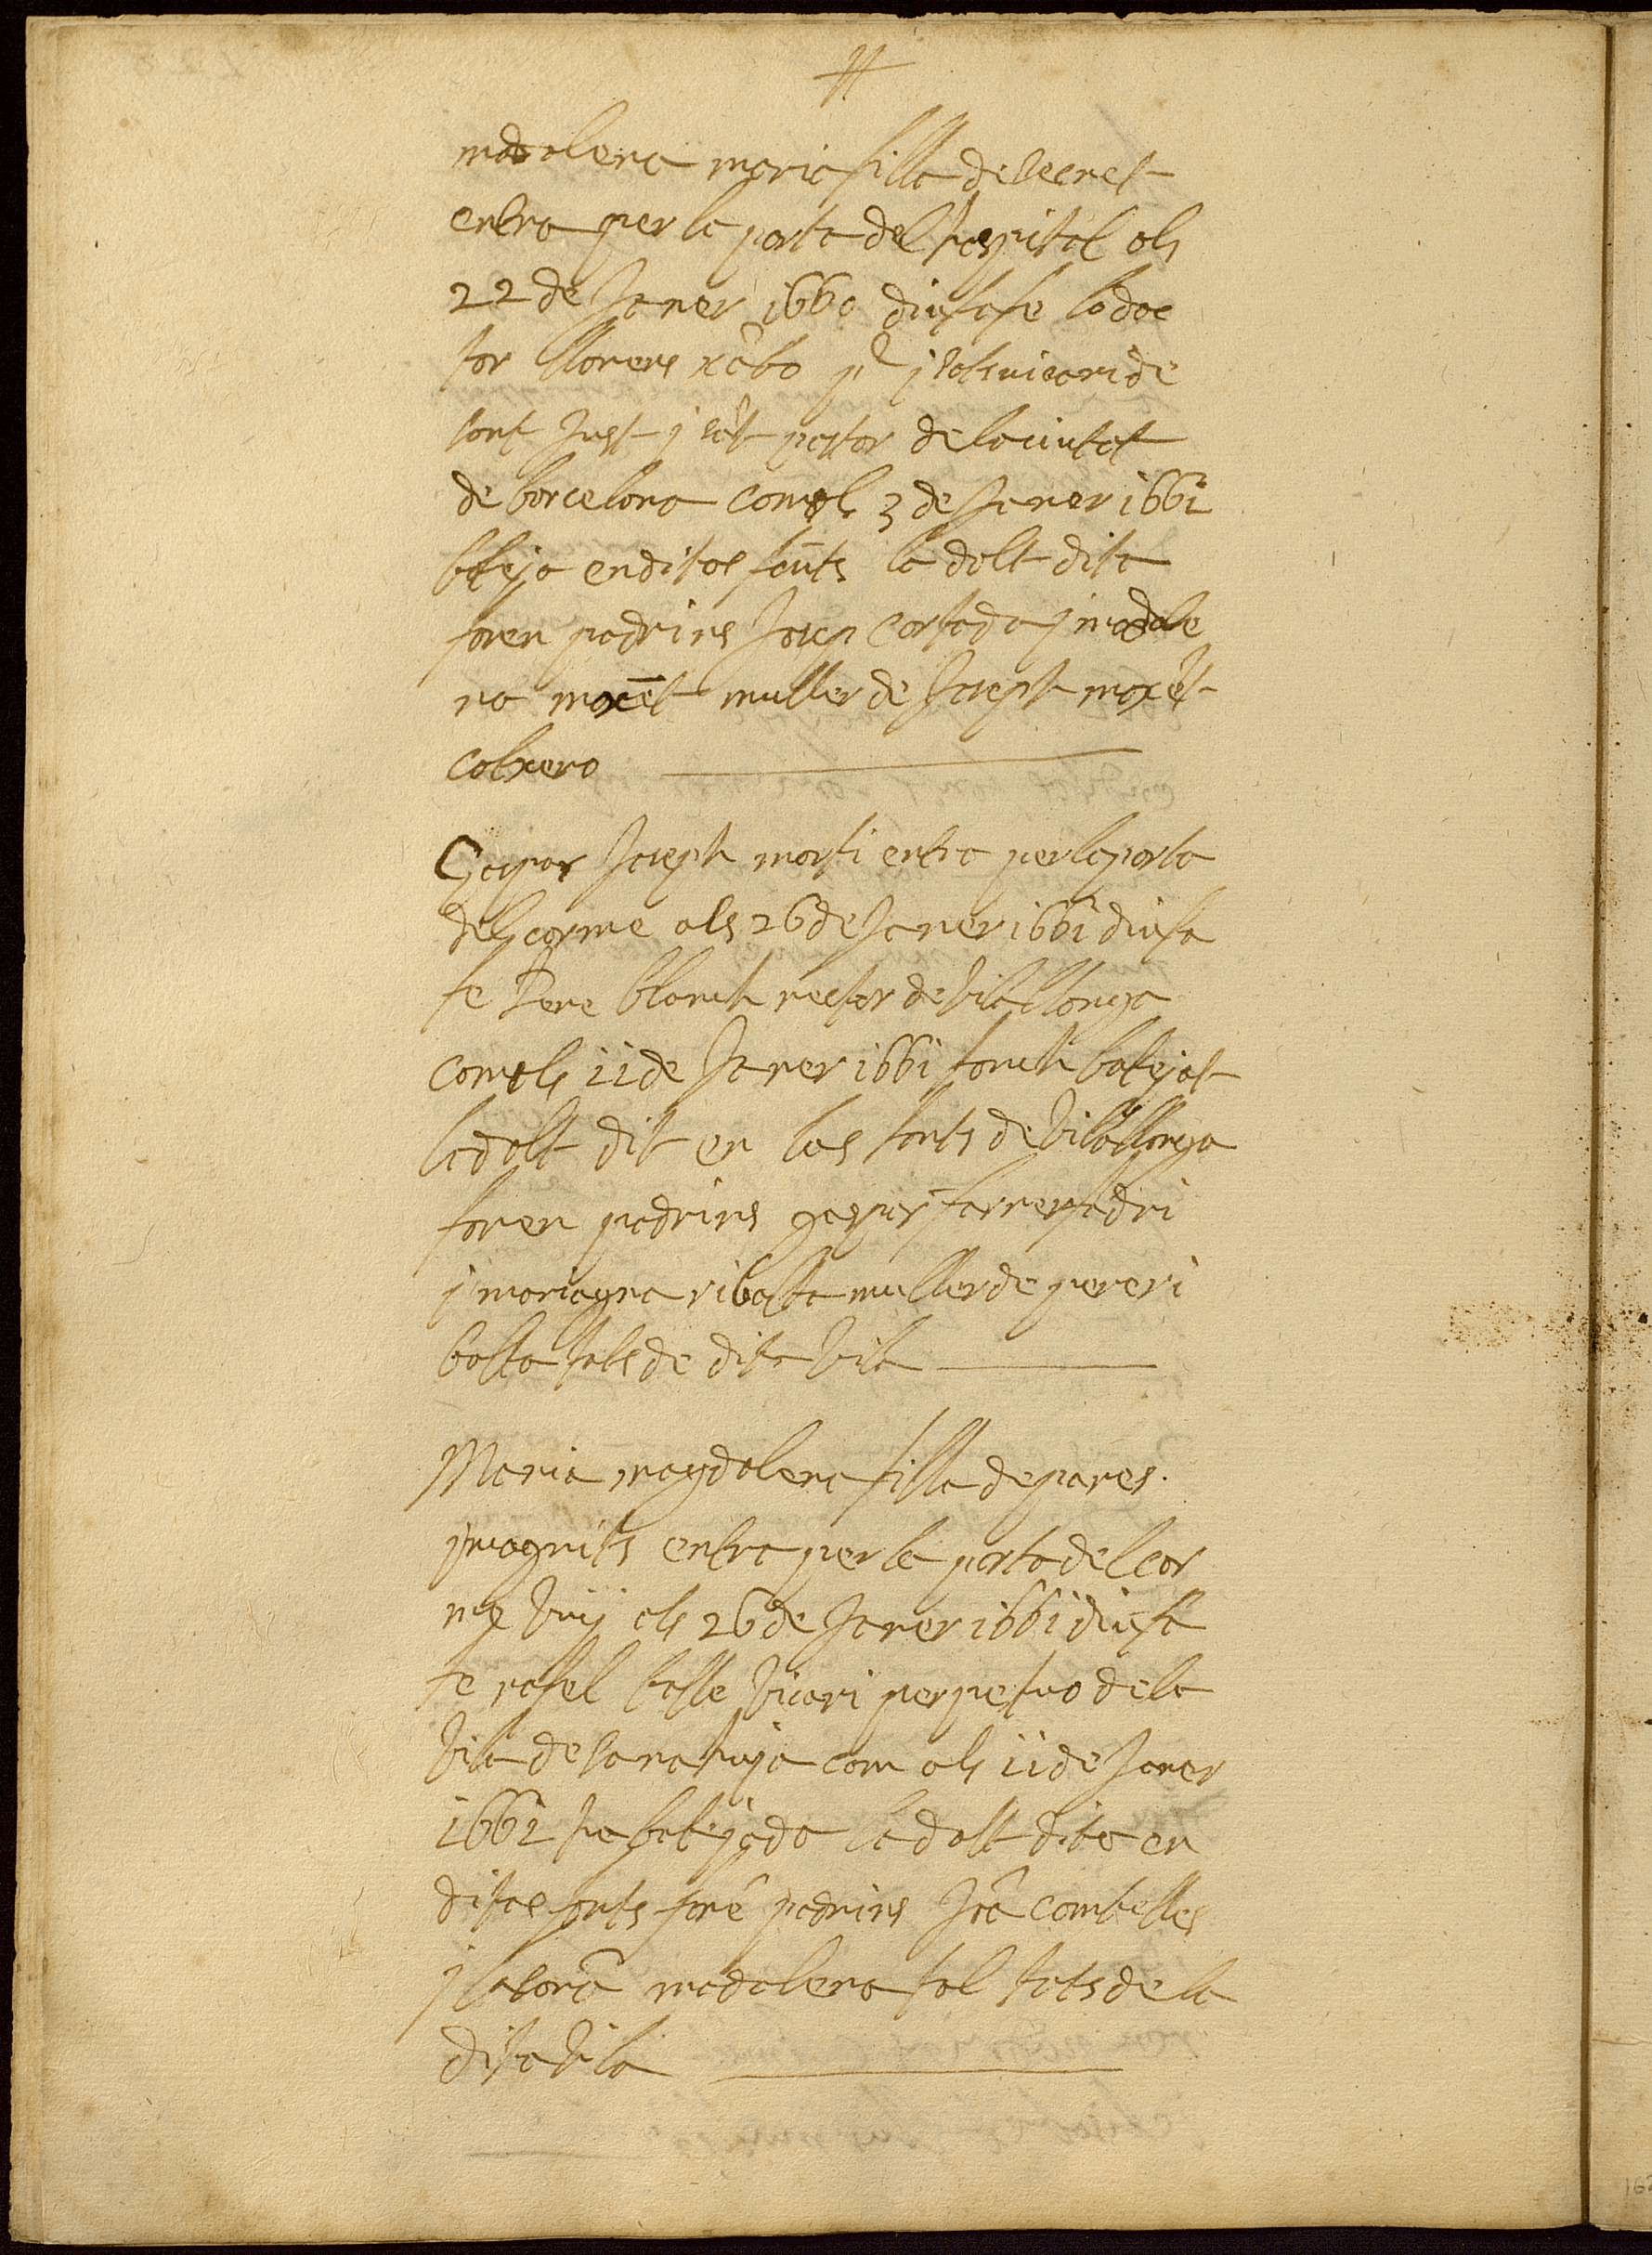 madalena maria filla de secret
entra per la porta del hospital als
22 de Janer 1660 diu sa fe lo doc
tor llorens xābo pre j sotsuicari de
sant Just j sāt pastor de la ciutat
de barcelona com als 3 de Janer 1661
bateja en ditas fōnts la dalt dita
foren padrins Josep cortada j madale
na maxēt muller de Joseph maxēt
calxero
Gaspar Joseph marti entra per la porta
del carme als 26 de Janer 1661 diu sa
fe Pere blanch rector de vilallonga
com als 11 de Janer 1661 fonch batejat
la dalt dit en las fonts de vilallonga
foren padrins gaspar ferrer fadri
j mariagna ribalta muller de pere ri
balta tots de dita vila
Maria magdalena filla de pares
ynagnits entra per la porta del car
me vuy als 26 de Janer 1661 diu sa
fe rafel batlle vicari perpetuo de la
vila de sanahuja com als 11 de Janer
1661 he batejada la dalt dita en
ditas fonts forē padrins Joā combelles
j la sorā madalena tots de la
dita vila